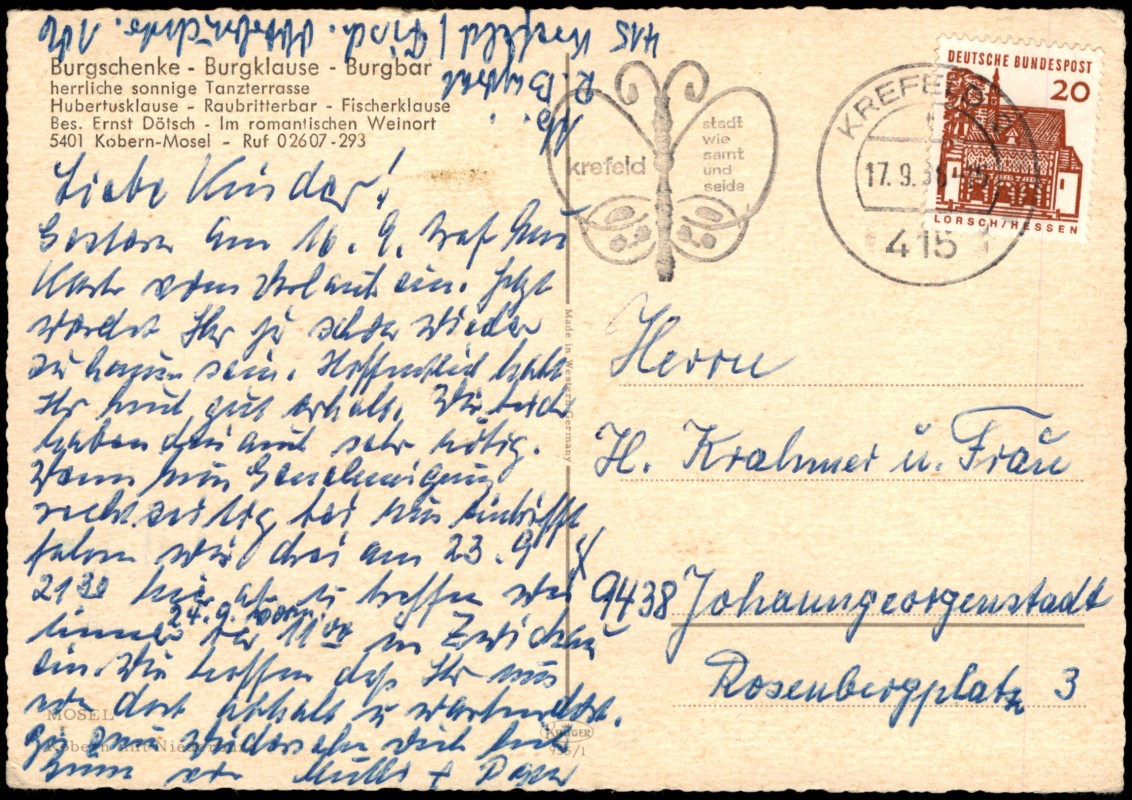 415 Krefeld / Fisch.
Burgschenke - Burgklause - Burgbar
herrliche sonnige Tanzterrasse
Hubertusklause - Raubritterbar - Fischerklause
Bes. Ernst Dötsch - Im romantischen Weinort
5401 Kobern-Mosel - Ruf 02607-293
Liebe Kinder!
Gestern am 16. 9. traf Eure
Karte vom Urlaub ein. Jetzt
werdet Ihr ja schon wieder
zu Hause sein. Hoffentlich habt
Ihr Euch gut erholt. Wir beide
haben das auch sehr nötig.
Wenn nun Genehmigung
rechtzeitig bei uns eintrifft
fahren wir drei am 23. 9
21 30 hier ab u. treffen wir
24. 9. vorm.
immer 11 00 in Zwickau
ein. Wir hoffen daß Ihr uns
von dort abholt u wartet dort.
Auf Wiedersehn
von Mutti + Papa
MOSEL
Kobern mit Niederburg
Made in Western Germany
KRÜGER
935/1
krefeld
stadt
wie
samt
und
seide
KREFELD
17. 9.
415 1
DEUTSCHE BUNDESPOST
20
LORSCH/HESSEN
Herrn
H. Krahmer u. Frau
9438 Johanngeorgenstadt
Rosenbergplatz 3